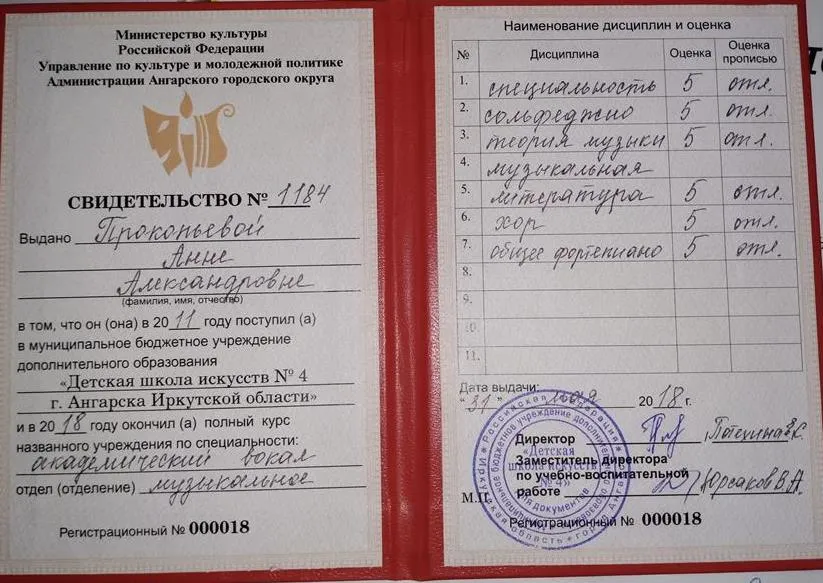 Министерство культуры
Российской Федерации
Управление по культуре и молодежной политике
Администрации Ангарского городского округа
СВИДЕТЕЛЬСТВО № 1184
Выдано Прокопьевой
Анне
Александровне
(фамилия, имя, отчество)
в том, что он (она) в 2011 году поступил (а)
в муниципальное бюджетное учреждение
дополнительного образования
«Детская школа искусств № 4
г. Ангарска Иркутской области»
и в 2018 году окончил (а) полный курс
названного учреждения по специальности:
академический вокал
отдел (отделение) музыкальное
Регистрационный № 000018
Наименование дисциплин и оценка
№ Дисциплина Оценка Оценка прописью
1. специальность 5 отл.
2. сольфеджио 5 отл.
3. теория музыки 5 отл.
4. музыкальная
5. литература 5 отл.
6. хор 5 отл.
7. общее фортепиано 5 отл.
8.
9.
10.
11.
Дата выдачи:
"31" мая 2018 г.
Директор Потехина
Заместитель директора
по учебно-воспитательной
работе Юрсаков В.А.
М.П.
Регистрационный № 000018
«Детская
школа искусств
№ 4»
для документов